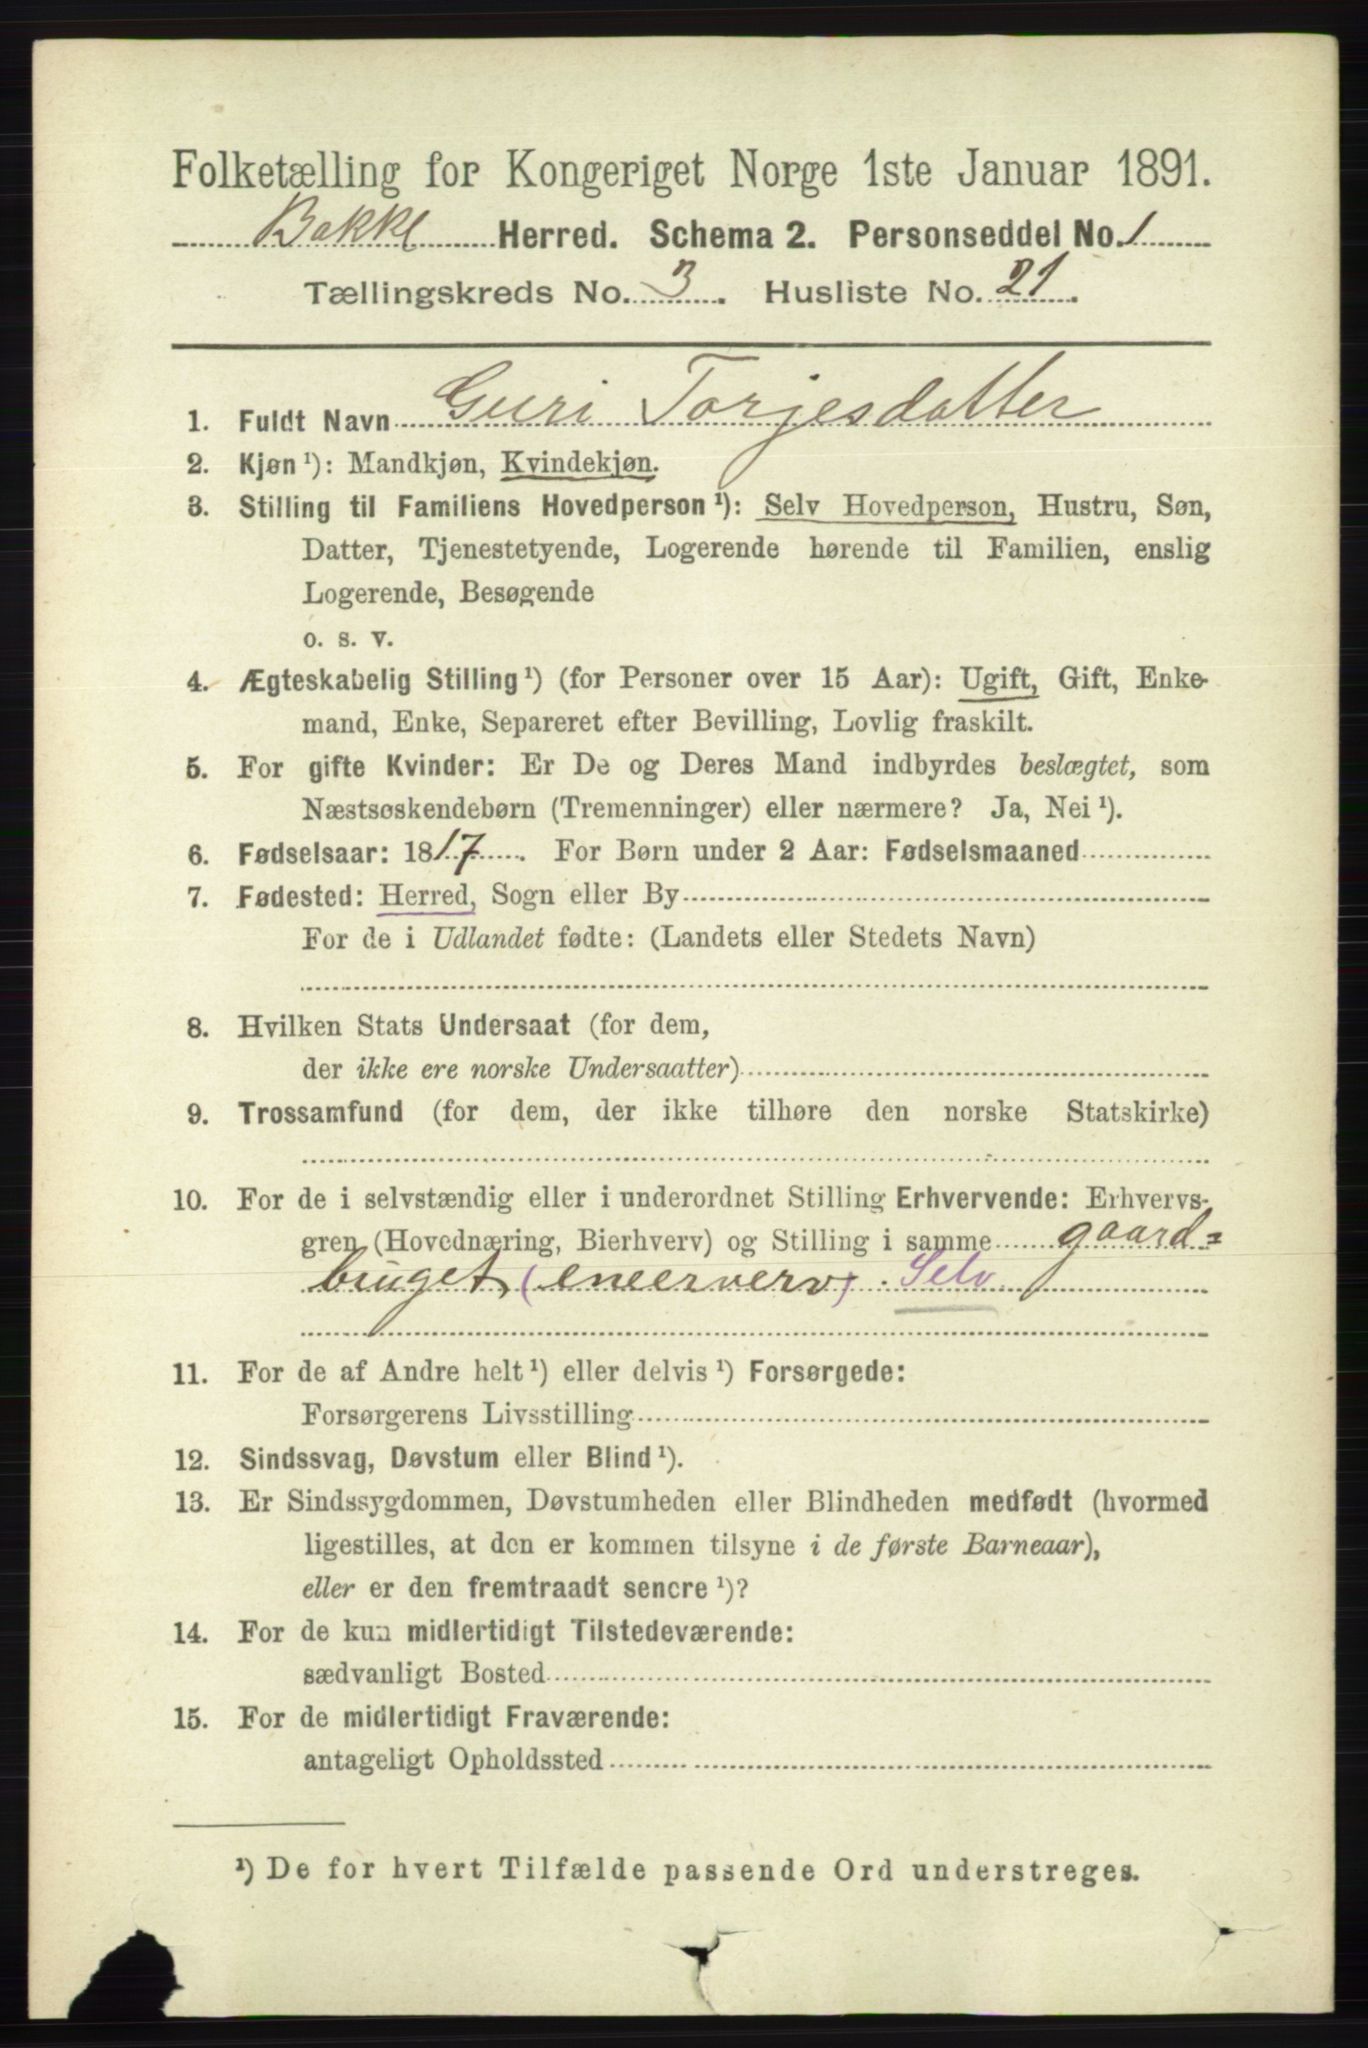 Folketælling for Kongeriget Norge 1ste Januar 1891.
Bakke Herred. Schema 2. Personseddel No. 1
Tællingskreds No. 3. Husliste No. 21.
1. Fuldt Navn Guri Torjesdatter
2. Kjøn ¹): Mandkjøn, Kvindekjøn.
3. Stilling til Familiens Hovedperson ¹): Selv Hovedperson, Hustru, Søn,
Datter, Tjenestetyende, Logerende hørende til Familien, enslig
Logerende, Besøgende
o. s. v.
4. Ægteskabelig Stilling ¹) (for Personer over 15 Aar): Ugift, Gift, Enke-
mand, Enke, Separeret efter Bevilling, Lovlig fraskilt.
5. For gifte Kvinder: Er De og Deres Mand indbyrdes beslægtet, som
Næstsøskendebørn (Tremenninger) eller nærmere? Ja, Nei ¹).
6. Fødselsaar: 1817. For Børn under 2 Aar: Fødselsmaaned
7. Fødested: Herred, Sogn eller By
For de i Udlandet fødte: (Landets eller Stedets Navn)
8. Hvilken Stats Undersaat (for dem,
der ikke ere norske Undersaatter)
9. Trossamfund (for dem, der ikke tilhøre den norske Statskirke)
10. For de i selvstændig eller i underordnet Stilling Erhvervende: Erhvervs-
gren (Hovednæring, Bierhverv) og Stilling i samme gaard=
bruget, (eneerverv). Selv.
11. For de af Andre helt ¹) eller delvis ¹) Forsørgede:
Forsørgerens Livsstilling
12. Sindssvag, Døvstum eller Blind ¹).
13. Er Sindssygdommen, Døvstumheden eller Blindheden medfødt (hvormed
ligestilles, at den er kommen tilsyne i de første Barneaar),
eller er den fremtraadt senere ¹)?
14. For de kun midlertidigt Tilstedeværende:
sædvanligt Bosted
15. For de midlertidigt Fraværende:
antageligt Opholdssted
¹) De for hvert Tilfælde passende Ord understreges.